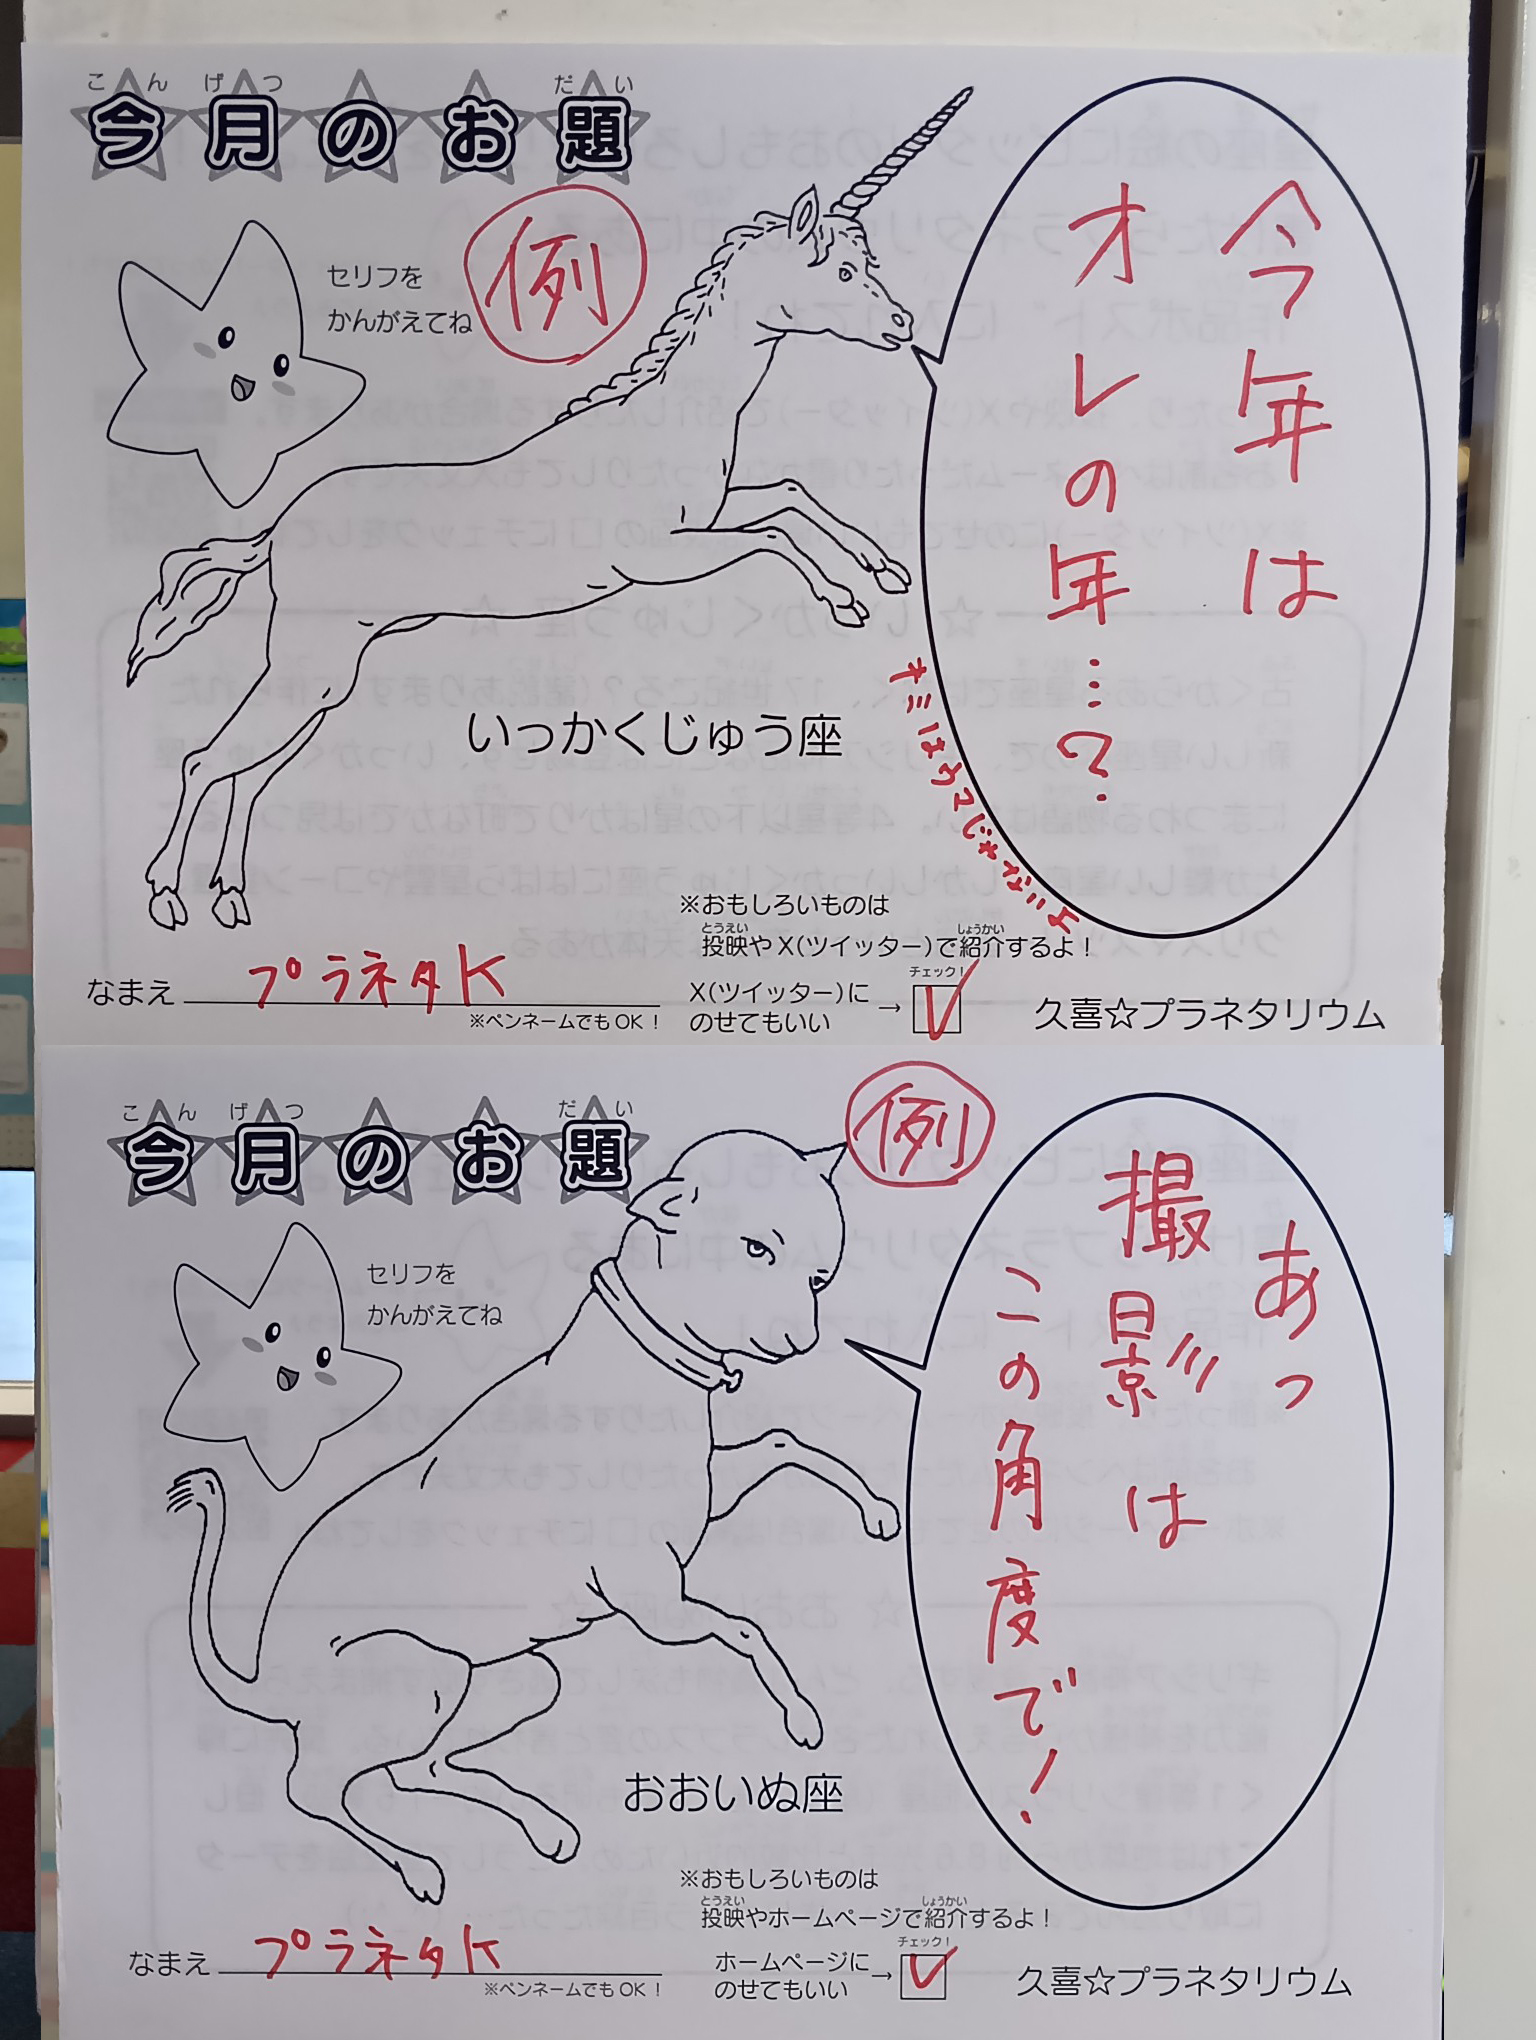 こんげつ だい
今月のお題
セリフを
かんがえてね
例
今年は
オレの年…?
キミはウマじゃないよ
いっかくじゅう座
※おもしろいものは
とうえい しょうかい
投映やX(ツイッター)で紹介するよ！
チェック！
なまえ プラネタK
※ペンネームでもOK！
X(ツイッター)に
のせてもいい
→
久喜☆プラネタリウム
こんげつ だい
今月のお題
セリフを
かんがえてね
例
あっ
撮影は
この角度で！
おおいぬ座
※おもしろいものは
とうえい しょうかい
投映やホームページで紹介するよ！
チェック！
なまえ プラネタK
※ペンネームでもOK！
ホームページに
のせてもいい
→
久喜☆プラネタリウム